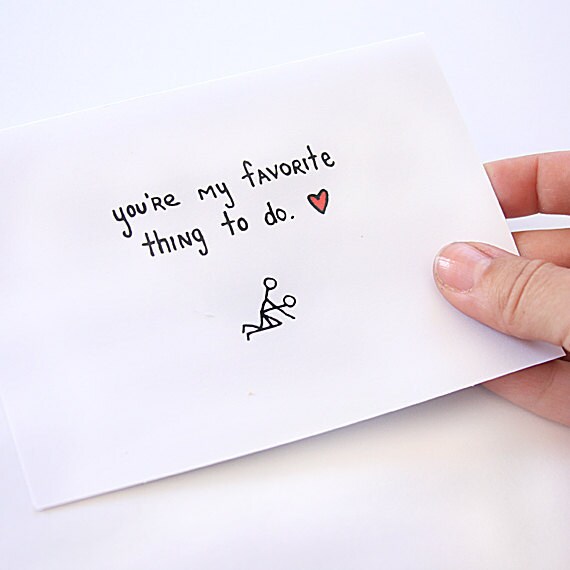 you're my favorite
thing to do.